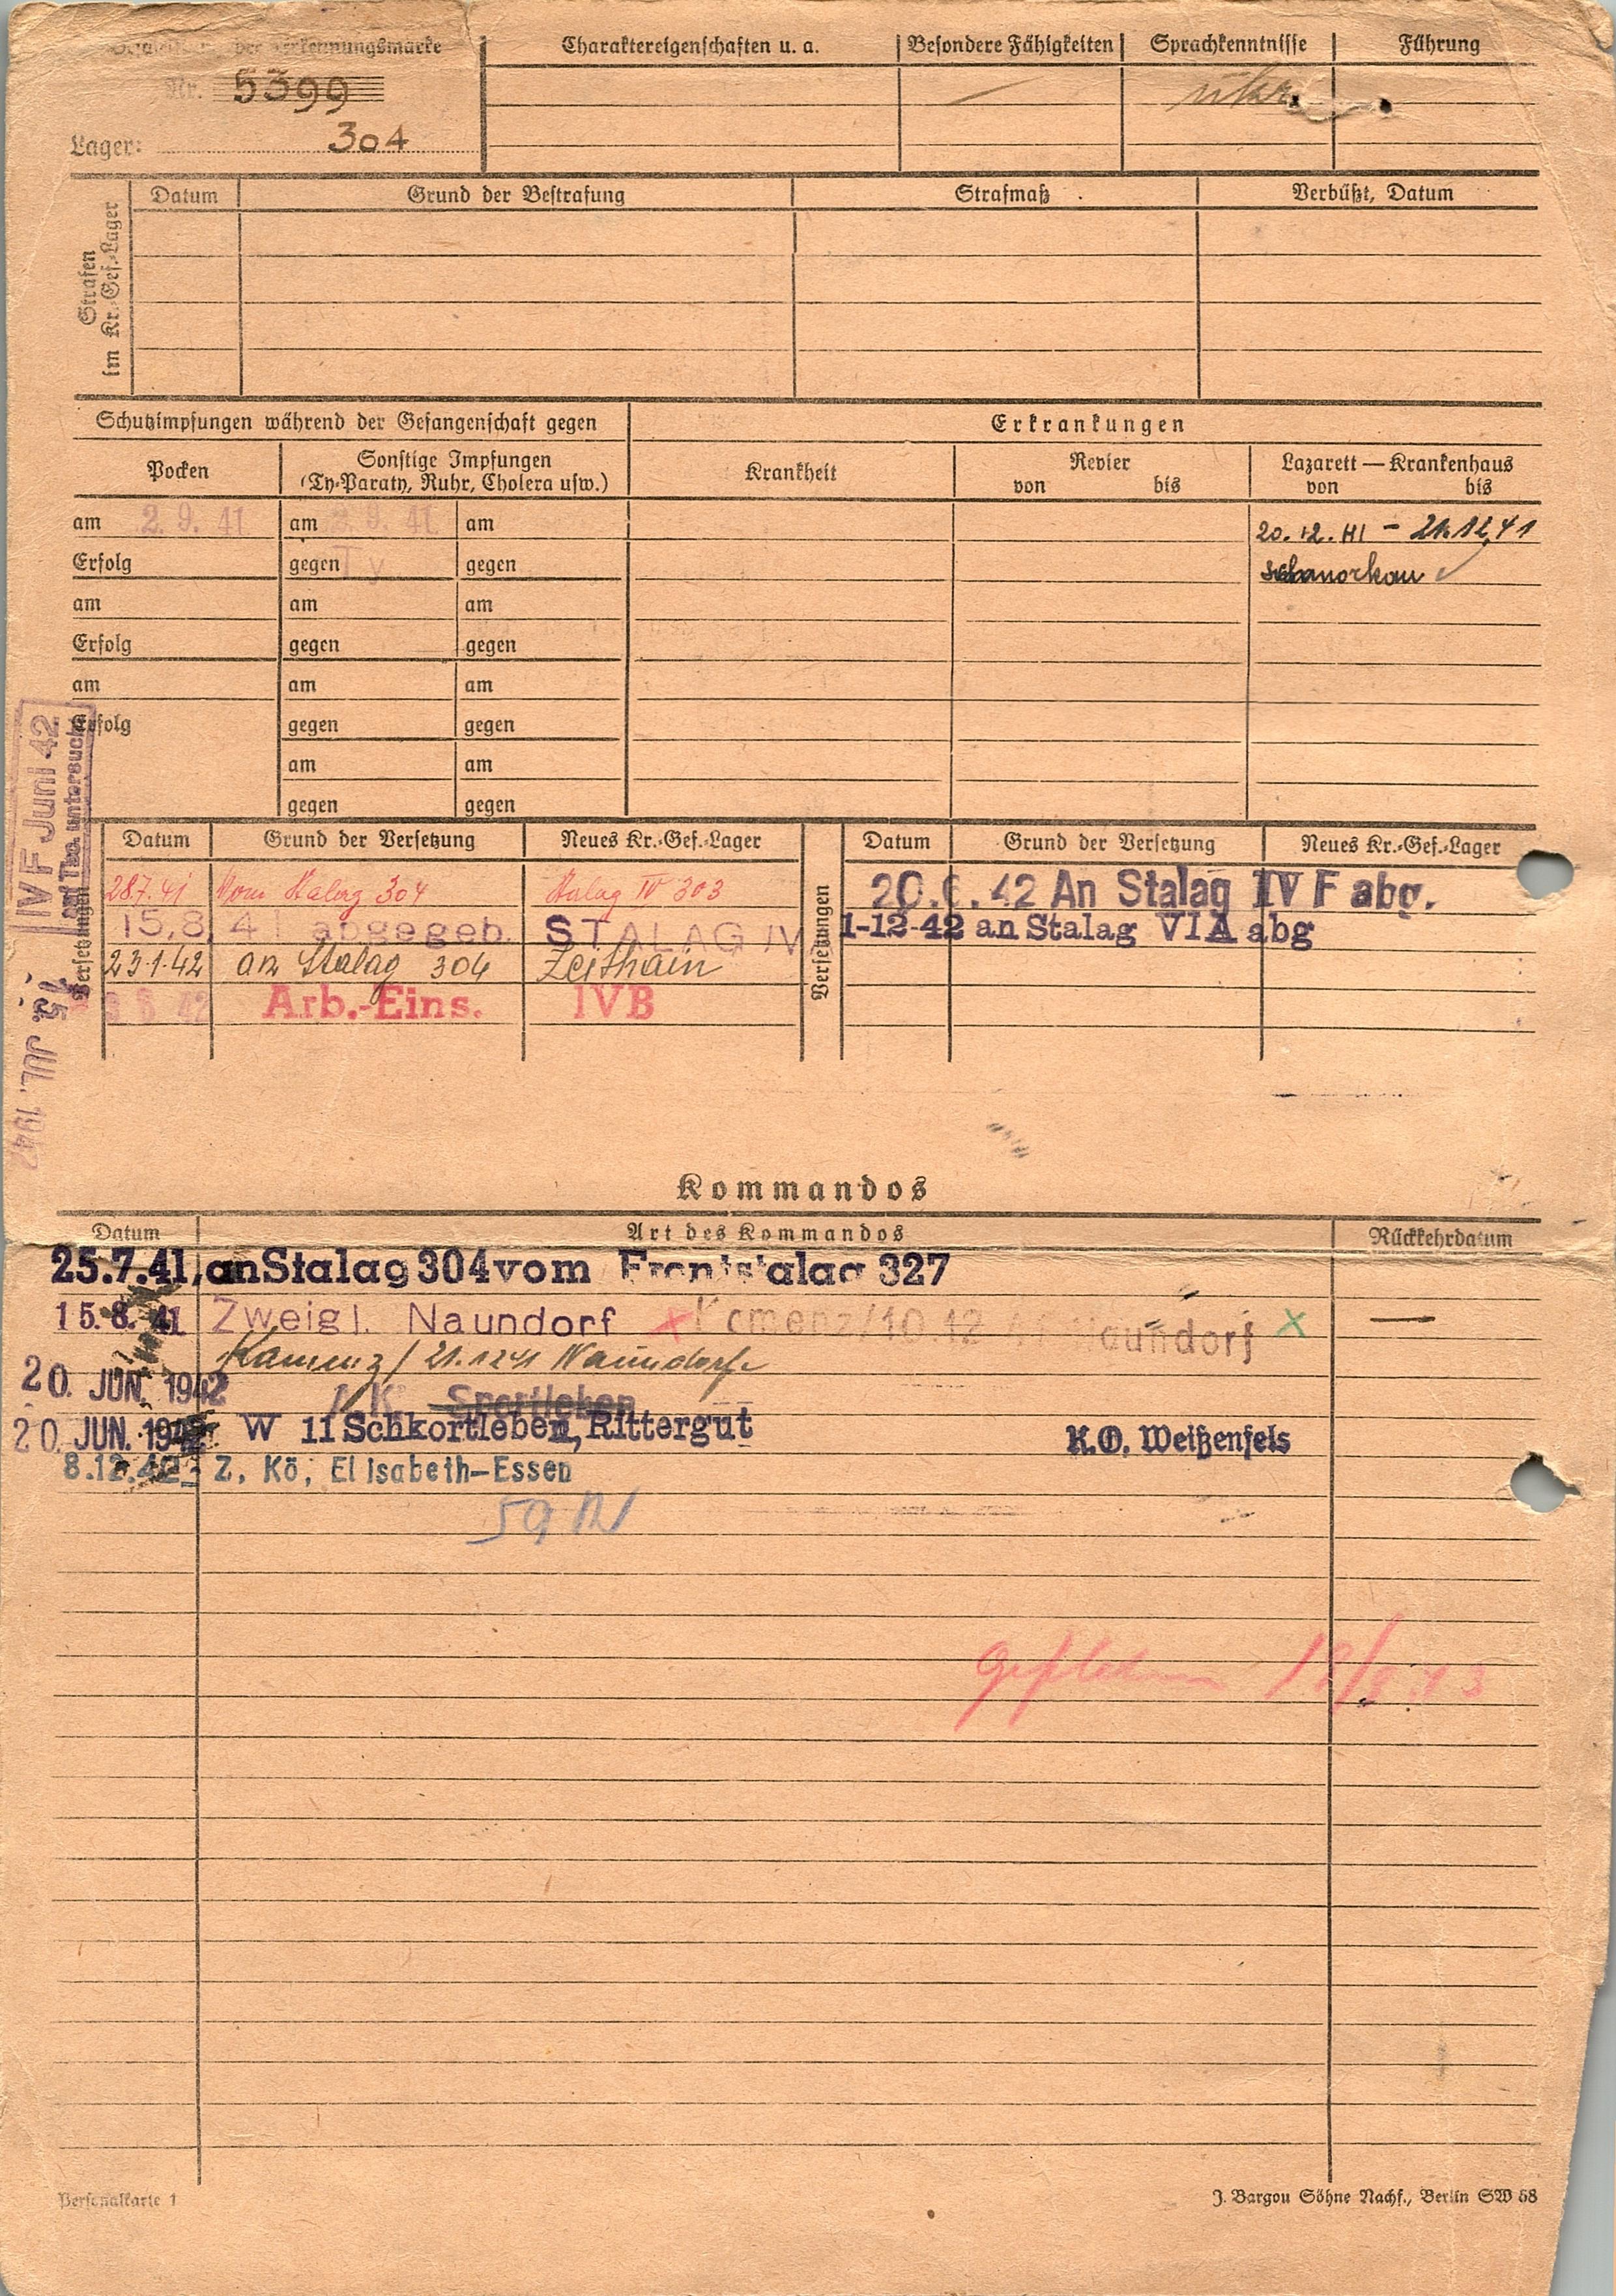 Beschriftung der Erkennungsmarke
Nr. 5399
Lager: 304
Charaktereigenschaften u. a.
Besondere Fähigkeiten
Sprachkenntnisse
Führung
ukr.
Strafen
im Kr.-Gef.-Lager
Datum
Grund der Bestrafung
Strafmaß
Verbüßt, Datum
Schutzimpfungen während der Gefangenschaft gegen
Erkrankungen
Pocken
Sonstige Impfungen
(Ty-Paraty, Ruhr, Cholera usw.)
Krankheit
Revier
von bis
Lazarett — Krankenhaus
von bis
am 2. 9. 41 am 2. 9. 41 am
20. 12. 41 - 21.12.41
Erfolg gegen Ty gegen
am am am
Erfolg gegen gegen
am am am
Erfolg gegen gegen
am am
gegen gegen
IV F Juni 42
auf Tbc. untersucht
15. JUL. 1942
Versetzungen
Datum Grund der Versetzung Neues Kr.-Gef.-Lager
28.7.41 Vom Stalag 304 Stalag IV 303
15.8. 41 abgegeb. STALAG IV
23.1.42 an Stalag 304 Zeithain
42 Arb.-Eins. IVB
Versetzungen
Datum Grund der Versetzung Neues Kr.-Gef.-Lager
20.6.42 An Stalag IV F abg.
1-12-42 an Stalag VI A abg
Kommandos
Datum Art des Kommandos Rückkehrdatum
25.7.41, an Stalag 304 vom Frontstalag 327
15.8. 41 Zweigl. Naundorf x Kamenz/10.12 41 Naundorf x —
Kamenz / 21.1241 Naundorf
20. JUN. 1942
20. JUN. 1942 W 11 Schkortleben, Rittergut K.O. Weißenfels
8.12.42 Z, Kö, Elisabeth-Essen
Geflohen
Personalkarte 1
J. Bargou Söhne Nachf., Berlin SW 68